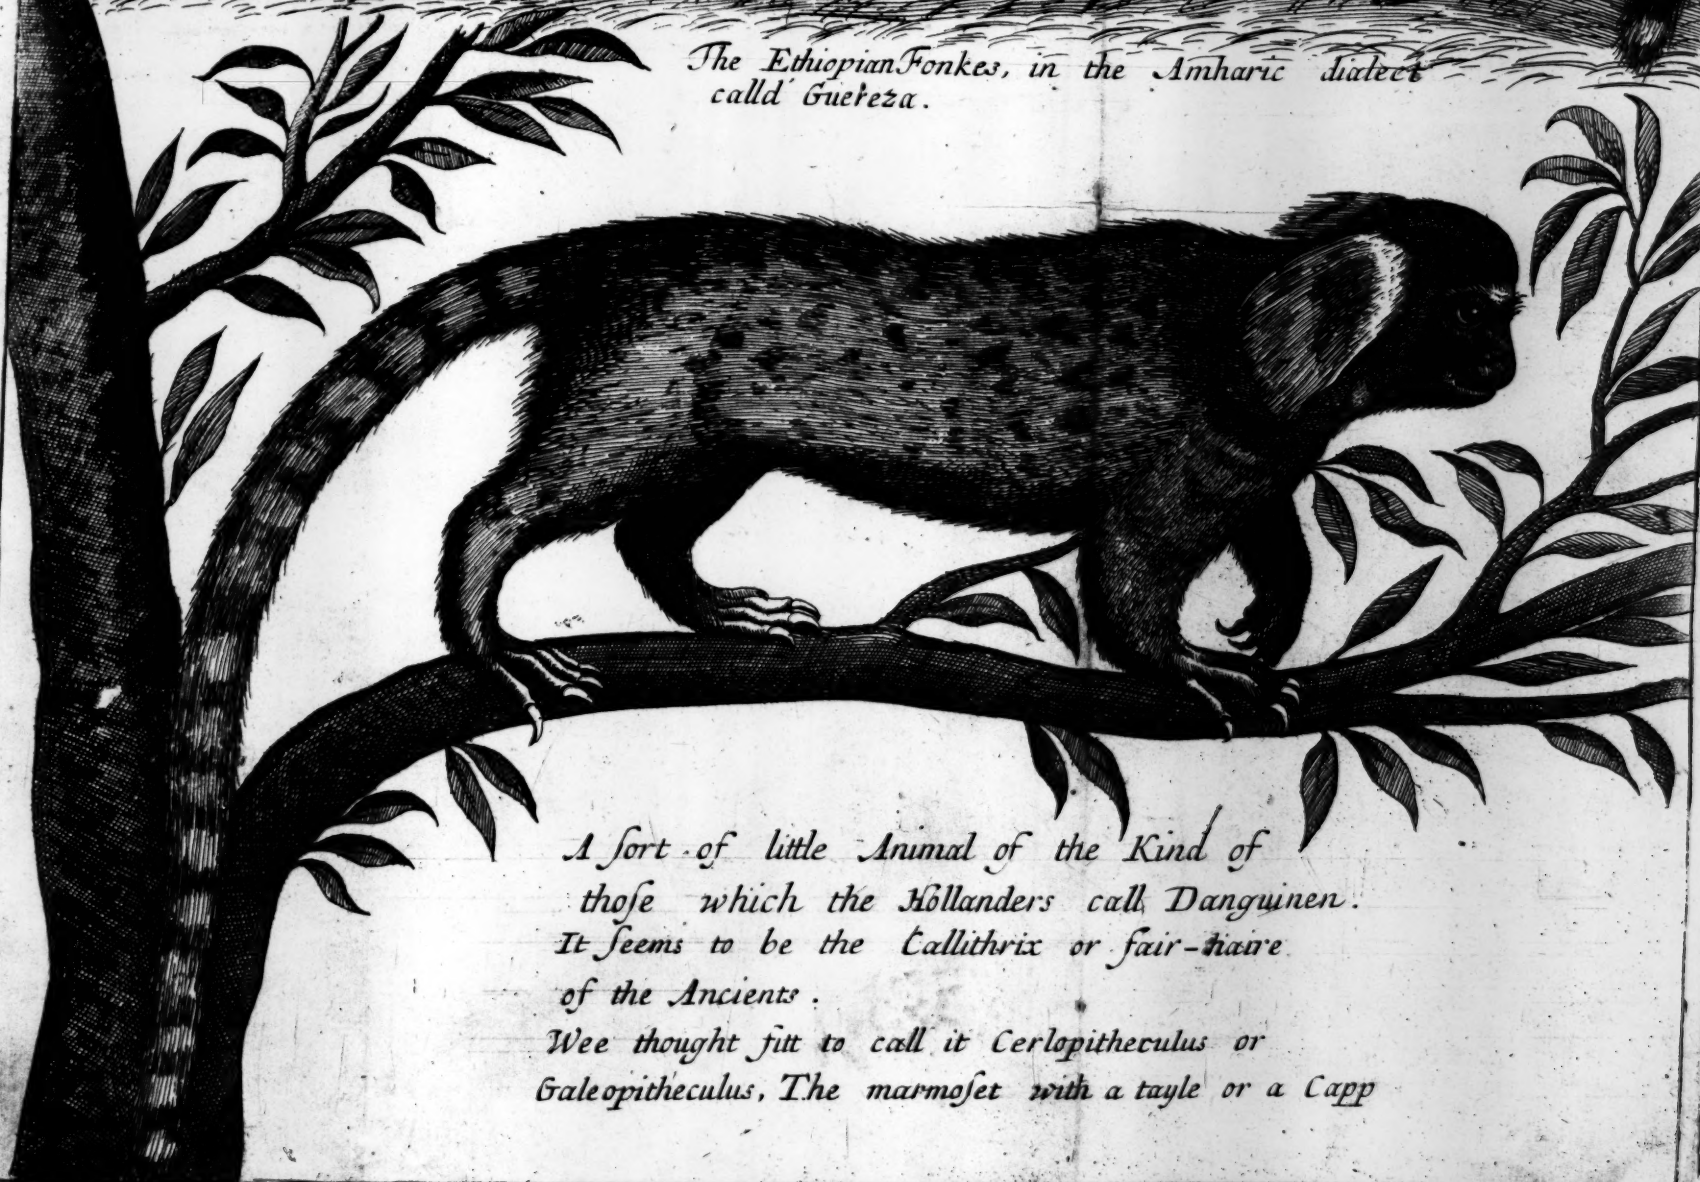 The Ethiopian Fonkes, in the Amharic dialect
calld Guereza.
A ſort of little Animal of the Kind of
thoſe which the Hollanders call Danguinen.
It ſeems to be the Callithrix or fair-haire
of the Ancients.
Wee thought fitt to call it Cerlopitheculus or
Galeopitheculus, The marmoſet with a tayle or a Capp